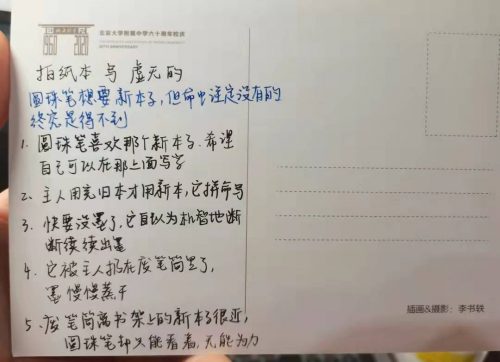 北京大学附属中学六十周年校庆
60TH ANNIVERSARY
拍纸本 与 虚无的
圆珠笔想要新本子，但命中注定没有的
终究是得不到
1. 圆珠笔喜欢那个新本子、希望
自己可以在那上面写字
2、主人用完旧本才用新本，它拼命写
3、快要没墨了，它自以为机智地断
断续续出墨
4、它被主人扔在废笔筒里了，
墨慢慢蒸干
5、废笔筒离书架上的新本子很近，
圆珠笔却只能看着，无能为力
插画&摄影：李书轶